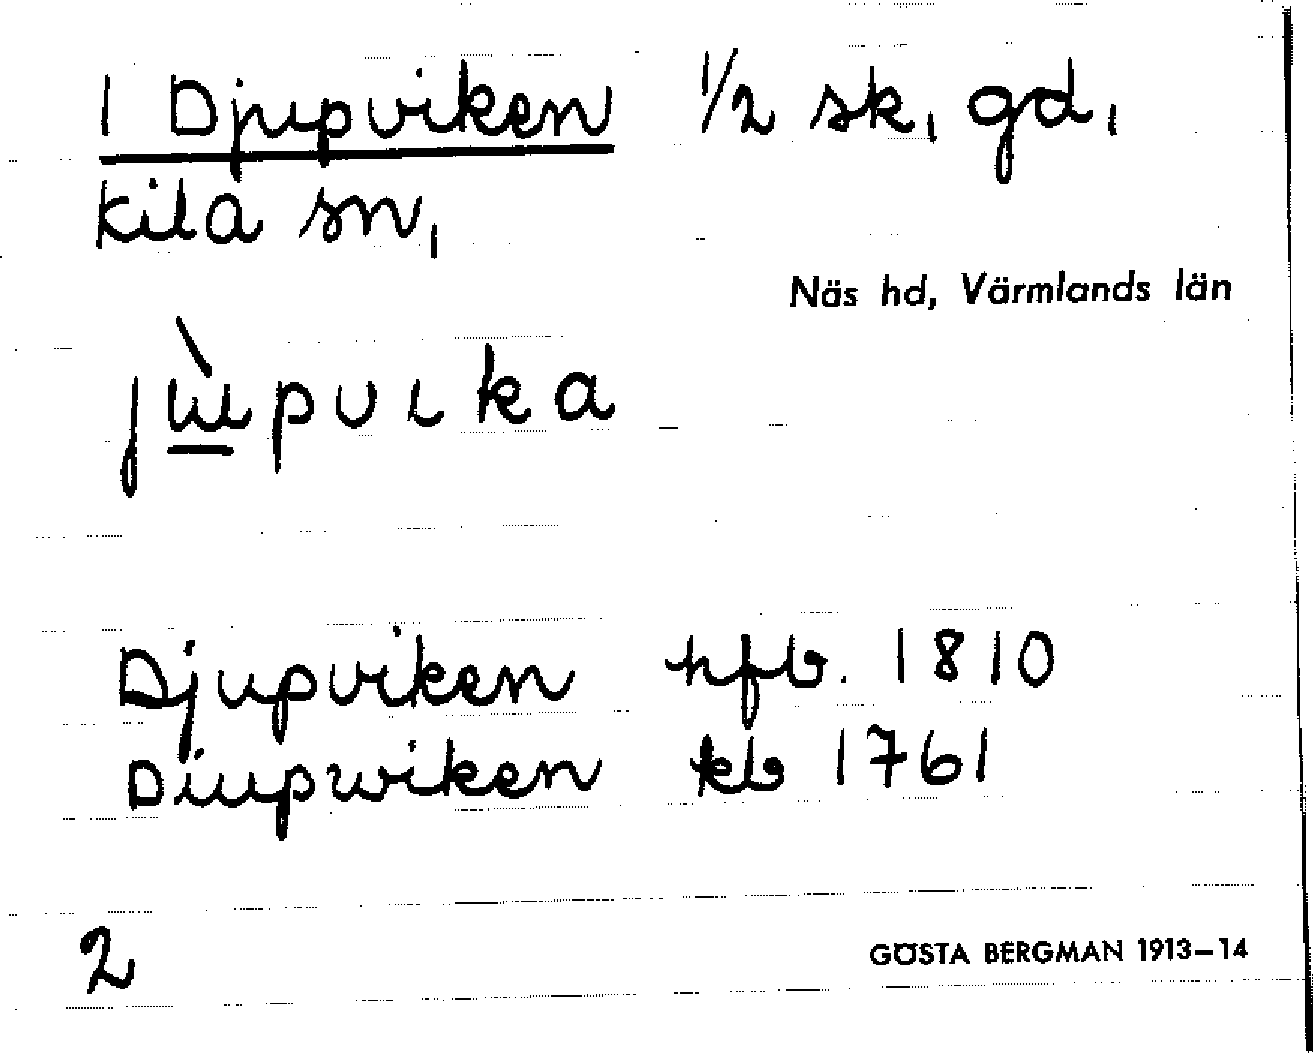 1 Djupviken 1/2 sk, gd,
Kila sn,
Näs hd, Värmlands län
jùpvɩka
Djupviken hfb. 1810
Diupwiken kb 1761
2
GÖSTA BERGMAN 1913–14